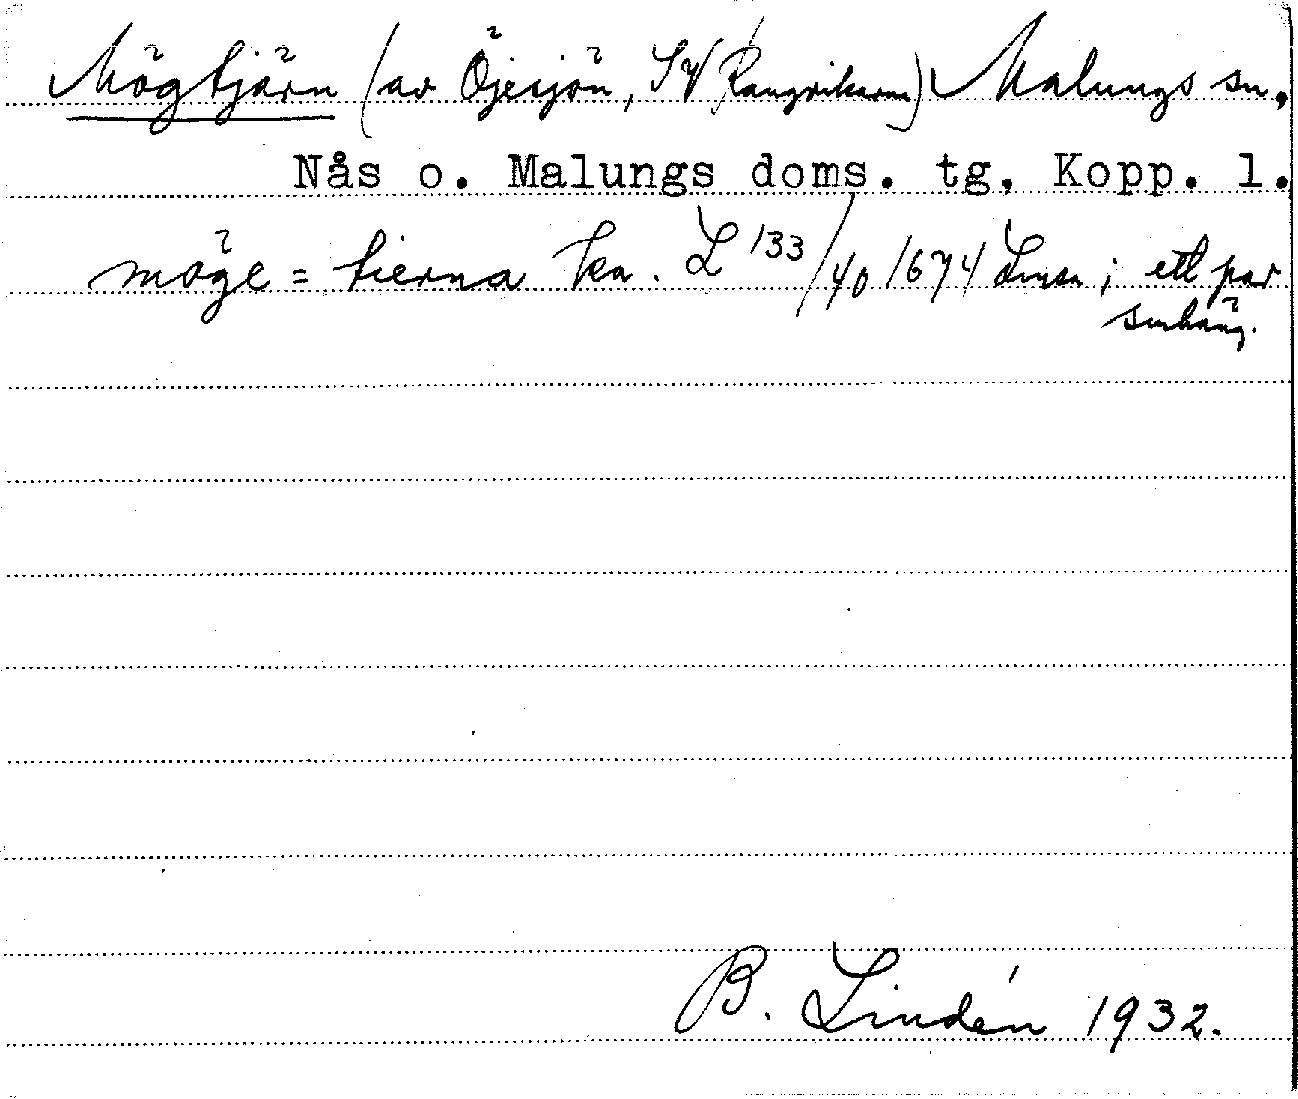 Mögtjärn (av Öjesjön, SV Rangrikarna) Malungs sn,
Nås o. Malungs doms. tg, Kopp. l.
möge = tierna ka. L 133/40 1674 Lmsa ; ett par
smhäng.
B. Lindén 1932.